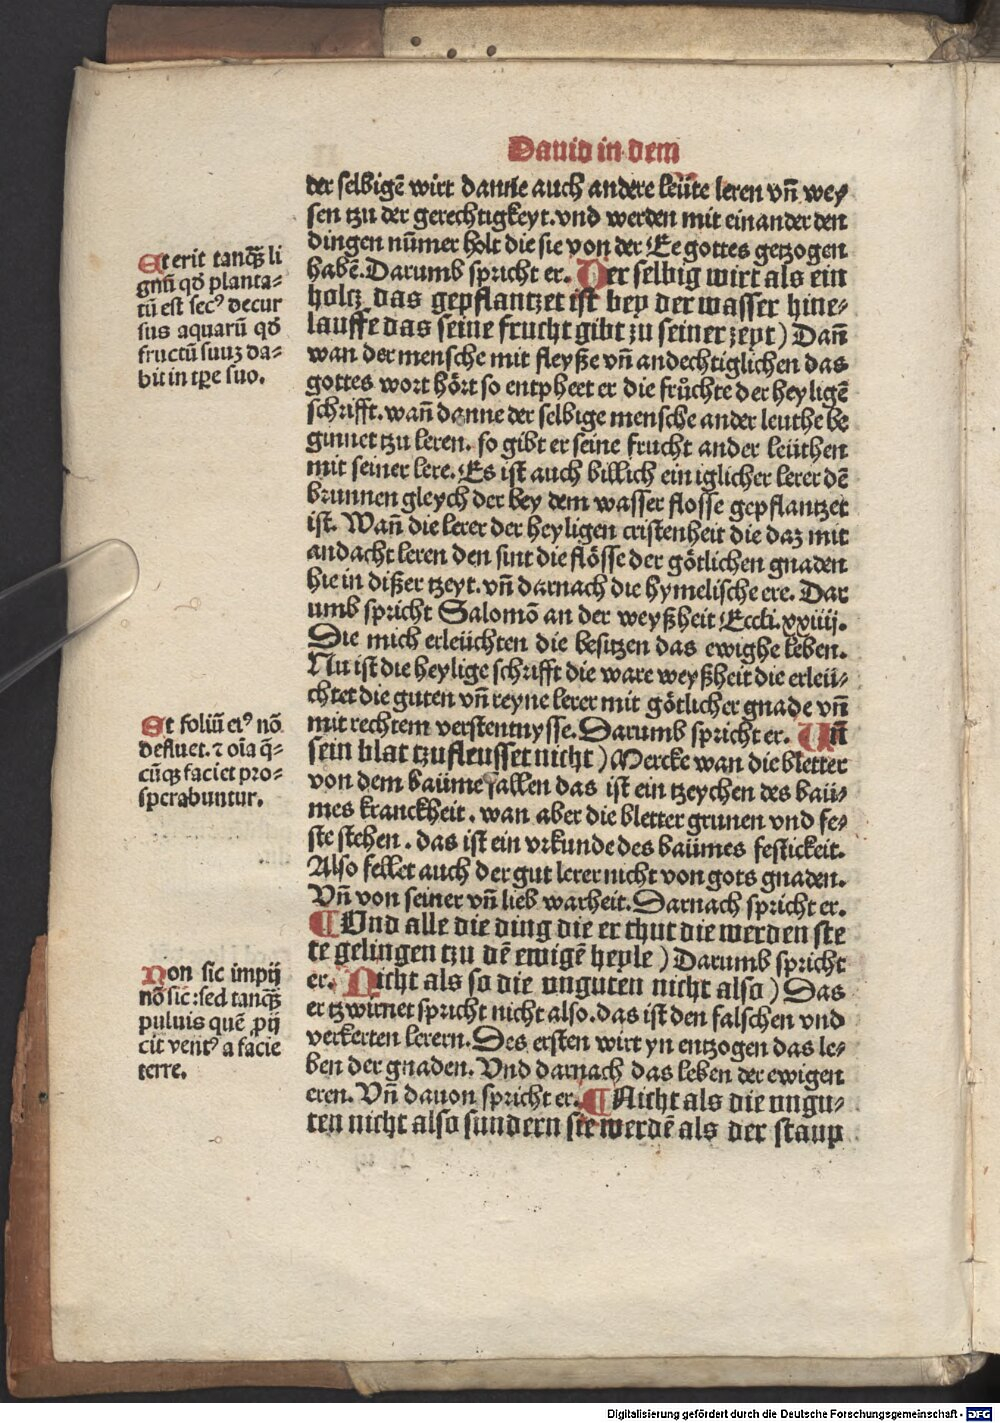 Dauid in dem
der selbigē wirt danne auch andere leüte leren vñ wey⸗
sen tzu der gerechtigkeyt. vnd werden mit einander den
dingen nūmer holt die sie von der Ee gottes getzogen
habē. Darumb spricht er. Der selbig wirt als ein
holtz das gepflantzet ist bey der wasser hine⸗
lauffe das seine frucht gibt zu seiner zeyt) Dañ
wan der mensche mit fleyße vñ andechtiglichen das
gottes wort hört so entpheet er die frůchte der heyligē
schrifft. wañ danne der selbige mensche ander leuthe be
ginnet tzu leren. so gibt er seine frucht ander leüthen
mit seiner lere. Es ist auch billich ein iglicher lerer dē
brunnen gleych der bey dem wasser flosse gepflantzet
ist. Wañ die lerer der heyligen cristenheit die daz mit
andacht leren den sint die flösse der götlichen gnaden
hie in dißer tzeyt. vñ darnach die hymelische ere. Dar
umb spricht Salomō an der weyßheit Eccli. xxiiij.
Die mich erleüchten die besitzen das ewighe leben.
Nu ist die heylige schrifft die ware weyßheit die erleü⸗
chtet die guten vñ reyne lerer mit götlicher gnade vñ
mit rechtem verstentnysse. Darumb spricht er. Uñ
sein blat tzufleusset nicht) Mercke wan die bletter
von dem baüme fallen das ist ein tzeychen des baü⸗
mes kranckheit. wan aber die bletter grunen vnd fe⸗
ste stehen. das ist ein vrkunde des baümes festickeit.
Also fellet auch der gut lerer nicht von gots gnaden.
Vñ von seiner vñ lieb warheit. Darnach spricht er.
¶ Und alle die ding die er thut die werden ste
te gelingen tzu dē ewigē heyle) Darumb spricht
er. Nicht als so die unguten nicht also) Das
er tzwirnet spricht nicht also. das ist den falschen vnd
verkerten lerern. Des ersten wirt yn entzogen das le⸗
ben der gnaden. Vnd darnach das leben der ewigen
eren. Vñ dauon spricht er. ¶ Nicht als die ungu⸗
ten nicht also sundern sie werdē als der staup
Et erit tanqꝫ li
gnū qd̄ planta⸗
tū est secꝰ decur
sus aquarū qd̄
fructū suuꝫ da⸗
bit in tꝑe suo.
Et foliū eiꝰ nō
defluet. ⁊ oīa q̄⸗
cūqꝫ faciet pro⸗
sperabuntur.
Non sic impij
nō sic: sed tanqꝫ
puluis quē ꝓij
cit ventꝰ a facie
terre.
Digitalisierung gefördert durch die Deutsche Forschungsgemeinschaft - DFG